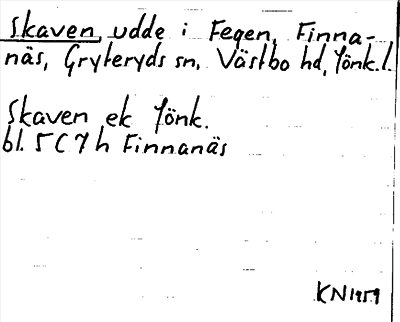 Skaven, udde i Fegen, Finna-
näs, Gryteryds sn, Västbo hd, Jönk.l.
Skaven ek Jönk.
bl. 5 C 7 h Finnanäs
KN1959